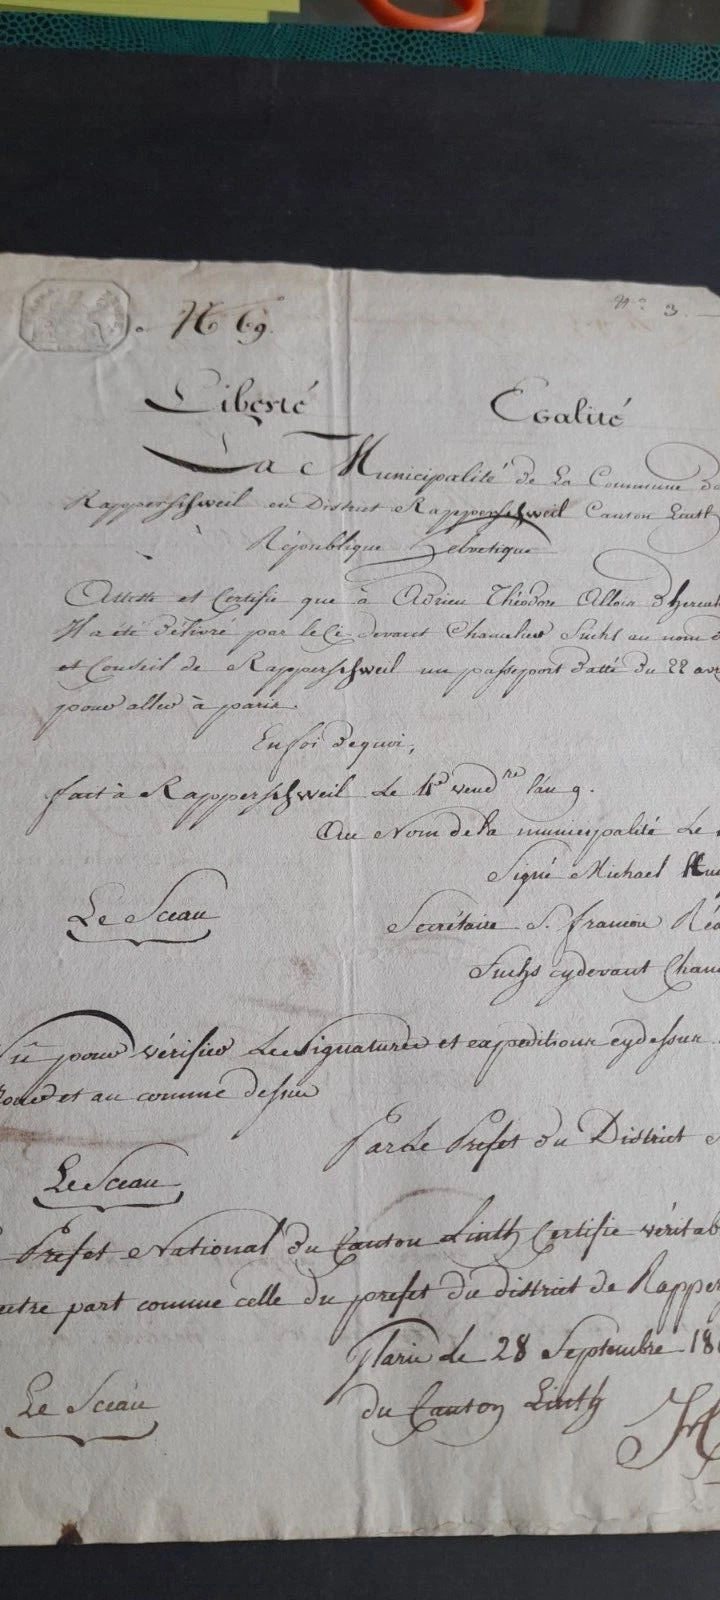 N 69.
N° 3.
Liberté Egalité
La Municipalité de La Commune de
Rapperschweil en District Rapperschweil Canton Linth
République Helvetique
Atteste et Certifie que à Adrien Théodore Alloir
Il a été délivré par le Ci devant Chancelier Fuchs au nom
et Conseil de Rapperschweil un passeport datté du 22
pour aller à paris.
En foi de quoi,
fait à Rapperschweil Le vend.re l'an 9.
Au Nom de la municipalité Le
Signé Michael
Le Sceau
Secrétaire
Fuchs cydevant
Vû pour vérifier Les Signatures et expeditions cydessus
et au comme dessus
Par Le Prefet du District
Le Sceau
Prefet National du Canton Linth Certifie
autre part comme celle du prefet du district de
Glaris Le 28 Septembre
du Canton Linth
Le Sceau